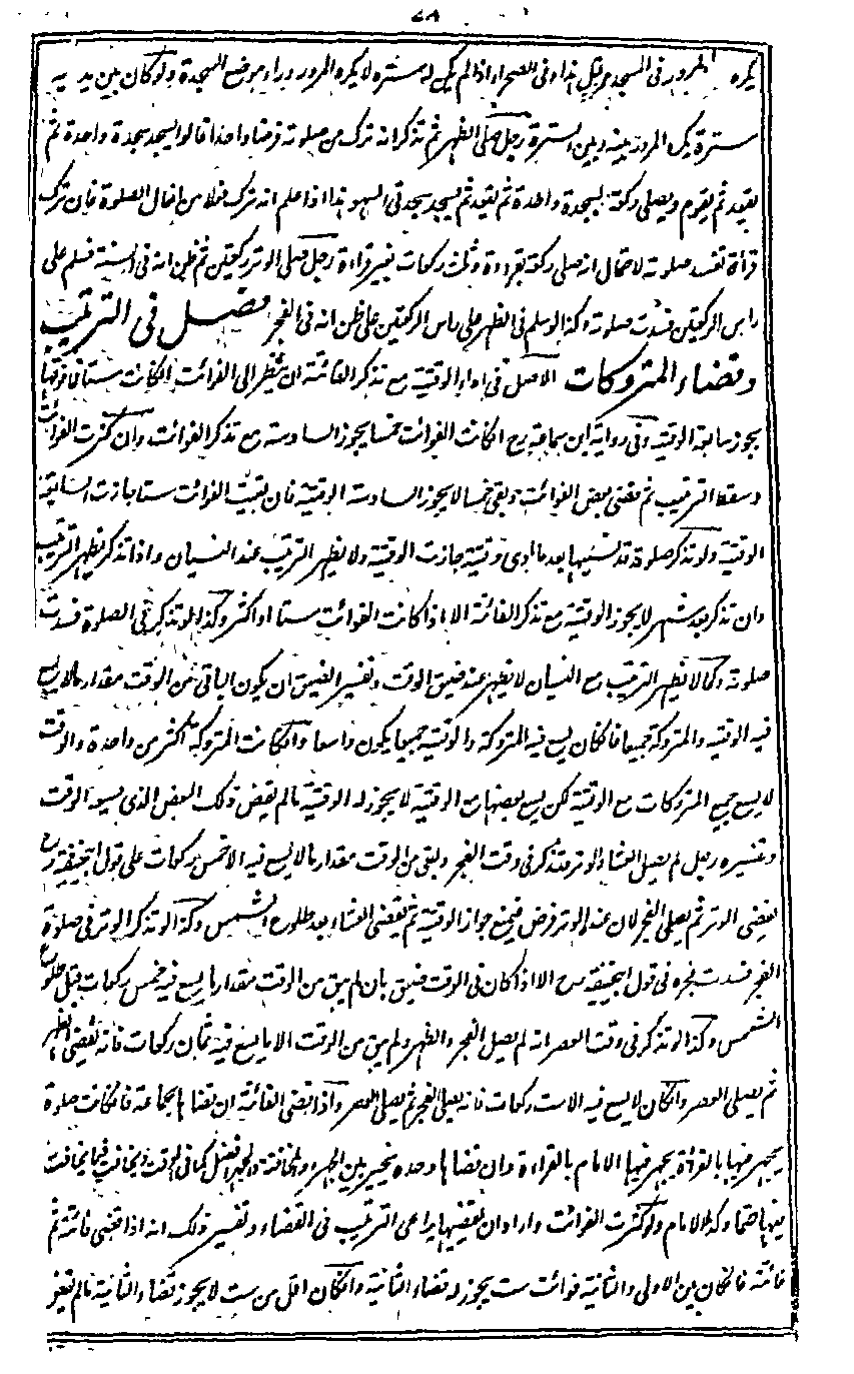 يكره المرور في المسجد من قبل هذا وفي الصحراء اذا لم يكن له سترة لا يكره المرور وراء موضع السجدة ولو كان بين يديه
سترة يكره المرور بينه وبين السترة رجل صلى الظهر ثم تذكر انه ترك من صلوته فرضا واحدا قالوا يسجد سجدة واحدة ثم
يقعد ثم يقوم ويصلي ركعة بسجدة واحدة ثم يقعد ثم يسجد سجدتي السهو هذا اذا علم انه ترك فعلا من افعال الصلوة فان ترك
قراءة تفسد صلوته لاحتمال انه صلى ركعة بقراءة وثلث ركعات بغير قراءة رجل صلى الوتر ركعتين ثم ظن انه في السنة فسلم على
راس الركعتين فسدت صلوته وكذا لو سلم في الظهر على راس الركعتين على ظن انه في الفجر فصل في الترتيب
وقضاء المتروكات الاصل في اداء الوقتية مع تذكر الفائتة ان ينظر الى الفوائت انكانت ستا فما فوقها
يجوز سابعة الوقتية وفي رواية ابن سماعة رح انكانت الفوائت خمسا يجوز السادسة مع تذكر الفوائت وان كثرت الفوائت
وسقط الترتيب ثم قضى بعض الفوائت وبقي خمسا لا يجوز السادسة الوقتية فان بقيت الفوائت ستا جازت السابعة
الوقتية ولو تذكر صلوة قد نسيها بعد ما ادى وقتية جازت الوقتية ولا يظهر الترتيب عند النسيان واذا تذكر يظهر الترتيب
وان تذكر بعد شهر لا يجوز الوقتية مع تذكر الفائتة الا اذا كانت الفوائت ستا او اكثر وكذا لو تذكر في الصلوة فسدت
صلوته وكما لا يظهر الترتيب مع النسيان لا يظهر عند ضيق الوقت وتفسير الضيق ان يكون الباقي من الوقت مقدار ما لا يسع
فيه الوقتية والمتروكة جميعا فان كان يسع فيه المتروكة والوقتية جميعا يكون واسعا وانكانت المتروكة اكثر من واحدة والوقت
لا يسع جميع المتروكات مع الوقتية لكن يسع بعضها مع الوقتية لا يجوز له الوقتية ما لم يقض ذلك البعض الذي يسعه الوقت
وتفسيره رجل لم يصل العشاء والوتر فتذكر في وقت الفجر وبقي من الوقت مقدار ما لا يسع فيه الا خمس ركعات على قول ابيحنيفة رح
يقضي الوتر ثم يصلي الفجر لان عنده الوتر فرض فيمنع جواز الوقتية ثم يقضي العشاء بعد طلوع الشمس وكذا لو تذكر الوتر في صلوة
الفجر فسدت فجره في قول ابيحنيفة رح الا اذا كان في الوقت ضيق بان لم يبق من الوقت مقدار ما يسع فيه خمس ركعات قبل طلوع
الشمس وكذا لو تذكر في وقت العصر انه لم يصل الفجر والظهر ولم يبق من الوقت الا ما يسع فيه ثمان ركعات فانه يقضي الظهر
ثم يصلي العصر وانكان لا يسع فيه الا ست ركعات فانه يصلي الفجر ثم يصلي العصر واذا قضى الفائتة ان قضاها بجماعة فان كانت صلوة
يجهر فيها بالقراءة يجهر فيها الامام بالقراءة وان قضاها وحده يخير بين الجهر والمخافتة والجهر افضل كما في الوقت ويخافت فيما يخافت
فيها حتما وكذا الامام ولو كثرت الفوائت واراد ان يقضيها يراعي الترتيب في القضاء وتفسير ذلك انه اذا قضى فائتة ثم
فائتة فان كان بين الاولى والثانية فوائت ست يجوز له قضاء الثانية وانكان اقل من ست لا يجوز قضاء الثانية ما لم يقض